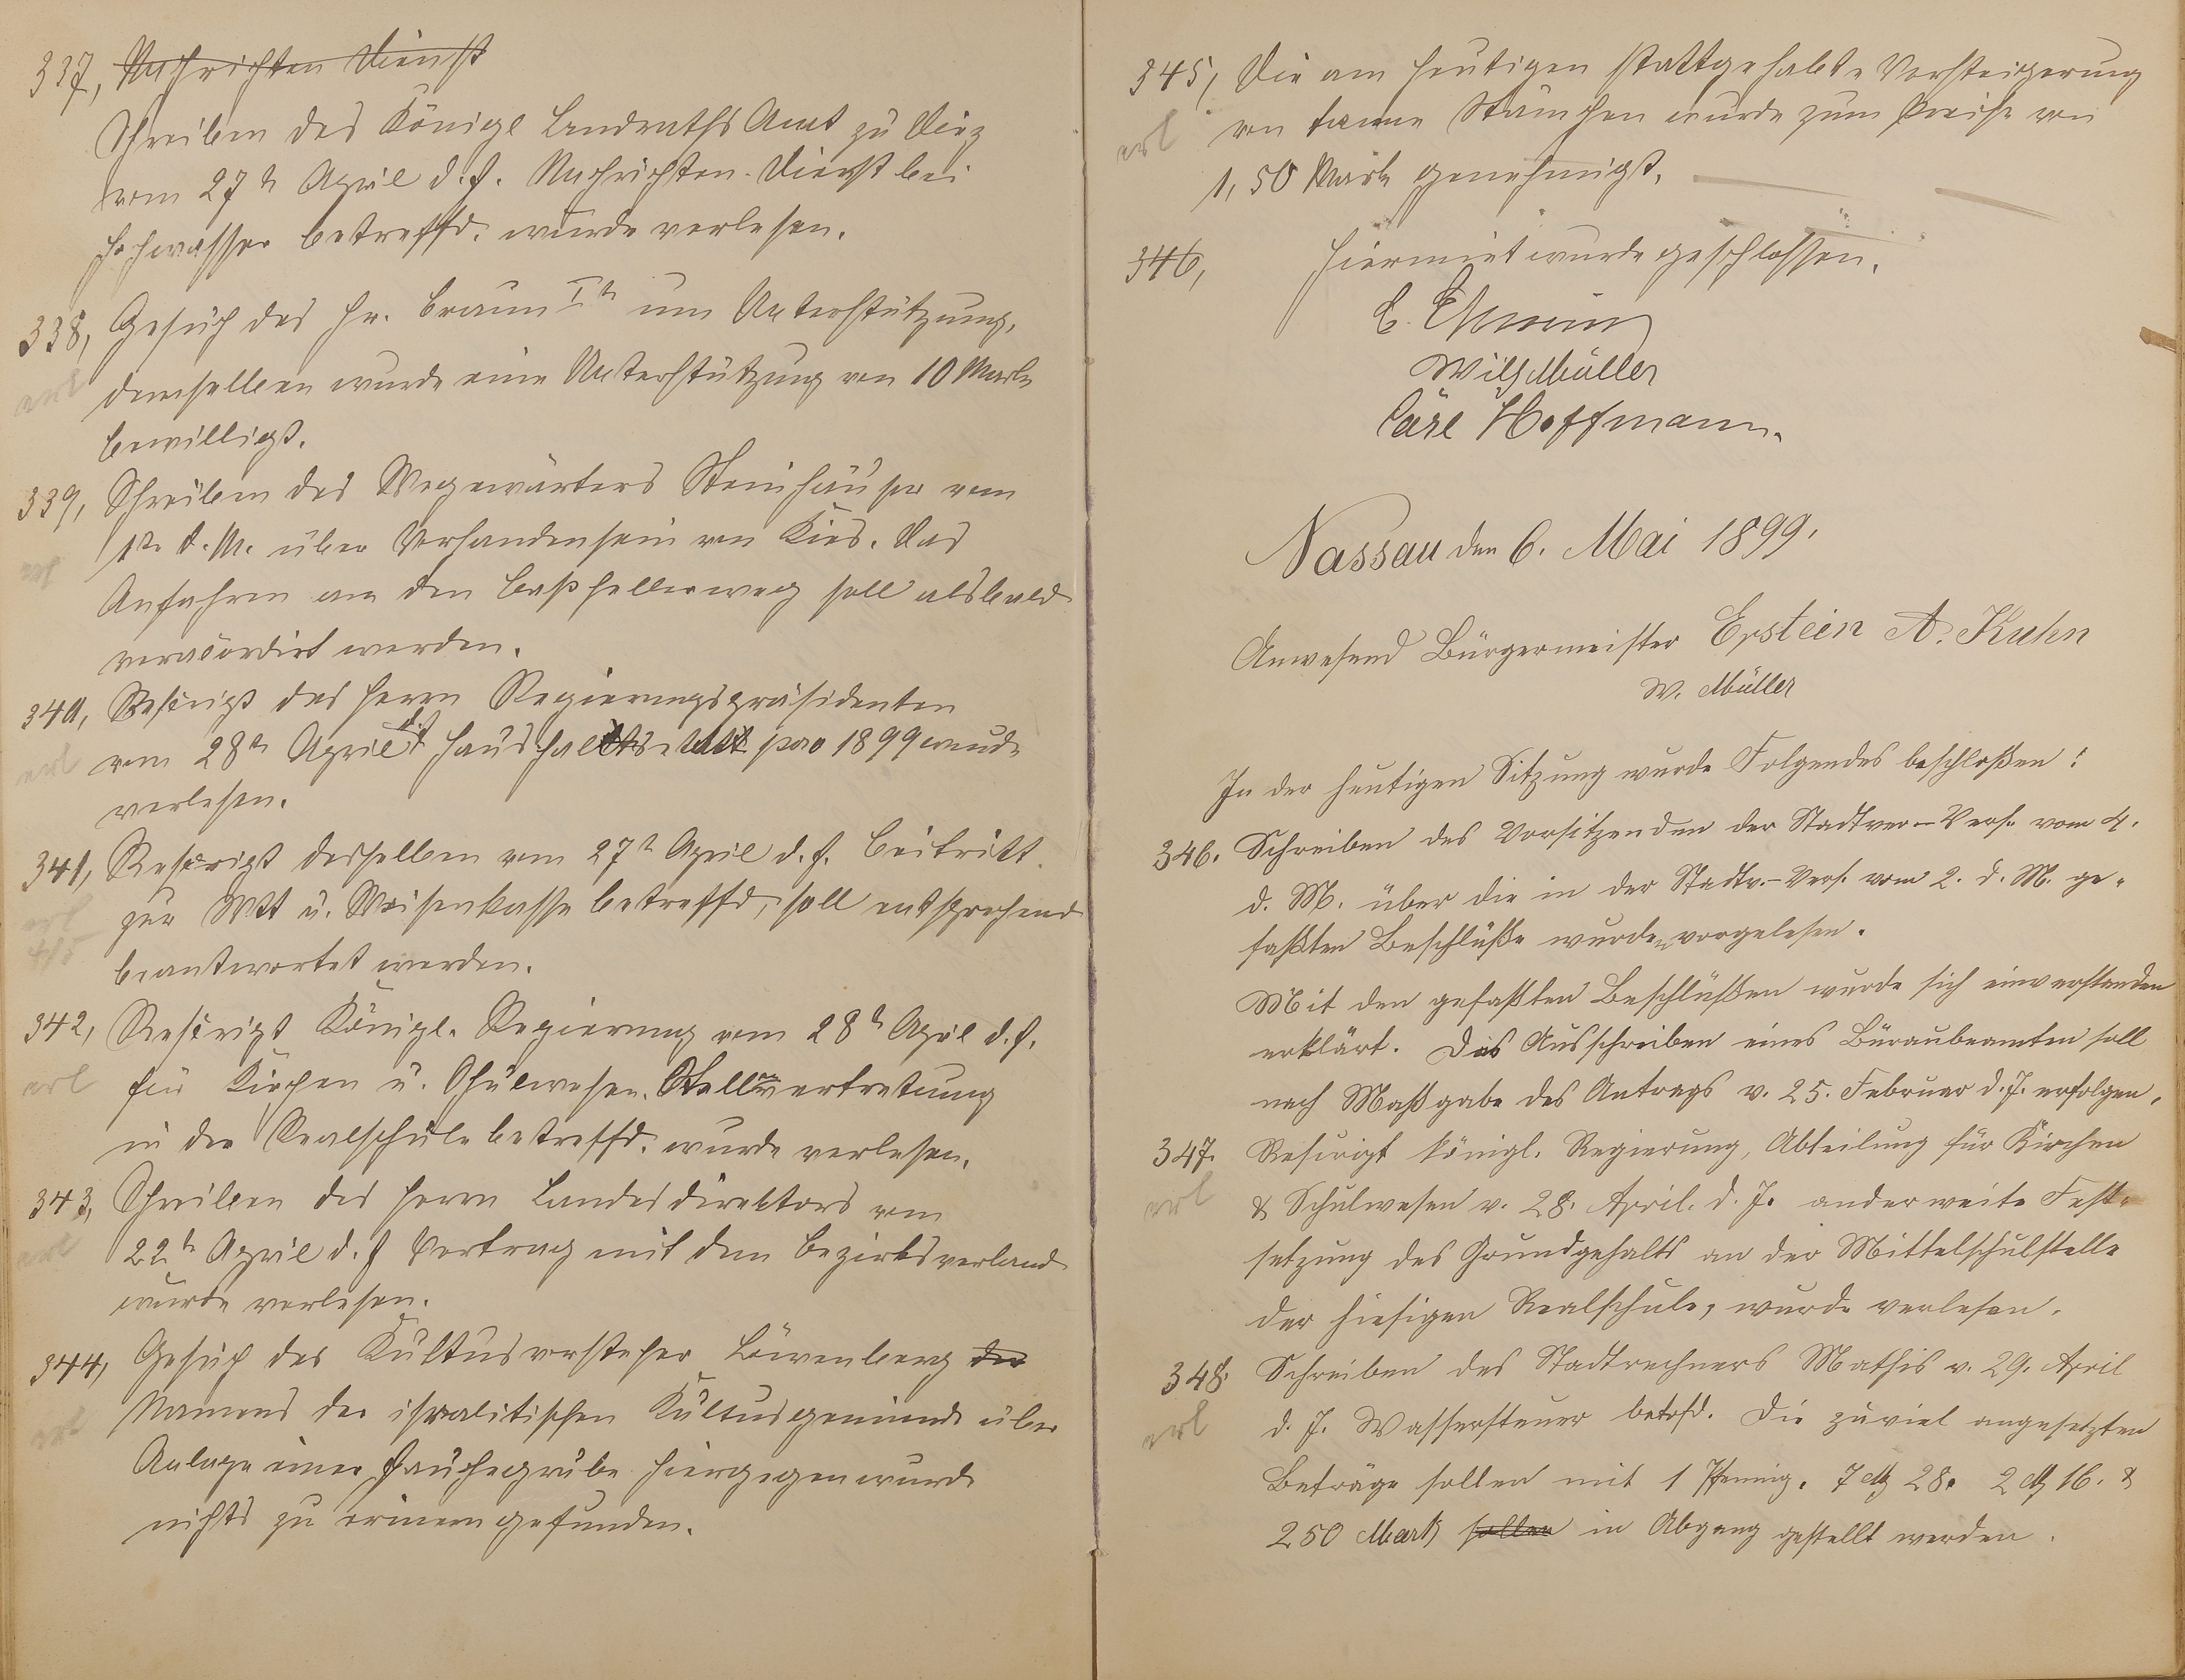 337, Nachrichten Dienst
Schreiben des Königl Landraths Amt zu Diez
vom 27t April d. J. Nachrichten-Dienst bei
Hochwasser betreffd. wurde verlesen.
338, Gesuch des Hr. Braun Ir um Unterstützung,
erl demselben wurde eine Unterstützung von 10 Mark
bewilligt.
339, Schreiben des Wegewärters Steinhäuser vom
1tn d. M. über Vorhandensein von Kies. Das
erl Anfahren an den weg soll alsbald
veracordirt werden.
340, Rescript des Herrn Regierungspräsidenten
erl vom 28tn April d J Haushalts-etat pro 1899 wurde
verlesen.
341, Rescript desselben vom 27t April d. J. Beitritt
erl zur Wtt u. Waisenkasse betreffd, soll entsprechend
beantwortet werden.
342, Rescript Königl. Regierung vom 28t April d. J.
erl für Kirchen u. Schulwesen. Stellvertretung
in der Realschule betreffd. wurde verlesen.
343, Schreiben des Herrn Landesdirektors vom
erl 22t April d. J Vertrag mit dem Bezirksverband
wurde verlesen.
344, Gesuch des Kultusvorsteher Löwenberg der
erl Namens der israelitischen Kultusgemeinde über
Anlage einer Jauchegrube hiergegen wurde
nichts zu erinern gefunden.
345, Die am heutigen stattgehabte Versteigerung
erl von tanne Stämchen wurde zum Preise von
1,50 Mark genehmigt.
346, Hiermit wurde geschlossen.
Wilh Müller
Carl Hoffmann.
Nassau den 6. Mai 1899.
Anwesend Bürgermeister Epstein A. Kuhn
W. Müller
In der heutigen Sitzung wurde Folgendes beschloßen:
346. Schreiben des Vorsitzenden der Stadtver-Vers. vom 4.
d. M. über die in der Stadtv.-Vers. vom 2. d. M. ge-
faßten Beschlüße wurden vorgelesen.
Mit den gefaßten Beschlüßen wurde sich einverstanden
erklärt. Das Ausschreiben eines Büraubeamten soll
nach Maßgabe des Antrags v. 25. Februar d. J. erfolgen.
347. Rescript königl. Regierung, Abteilung für Kirchen
erl & Schulwesen v. 28. April. d. J. anderweite Fest-
setzung des Grundgehalts an der Mittelschulstelle
der hiesigen Realschule, wurde verlesen.
348. Schreiben des Stadtrechners Mathis v. 29. April
erl d. J. Wassersteuer betrfd. Die zuviel angesetzten
Beträge sollen mit 1 Pfennig. 7 M 28. 2 M 16. &
250 Mark sollen in Abgang gestellt werden.